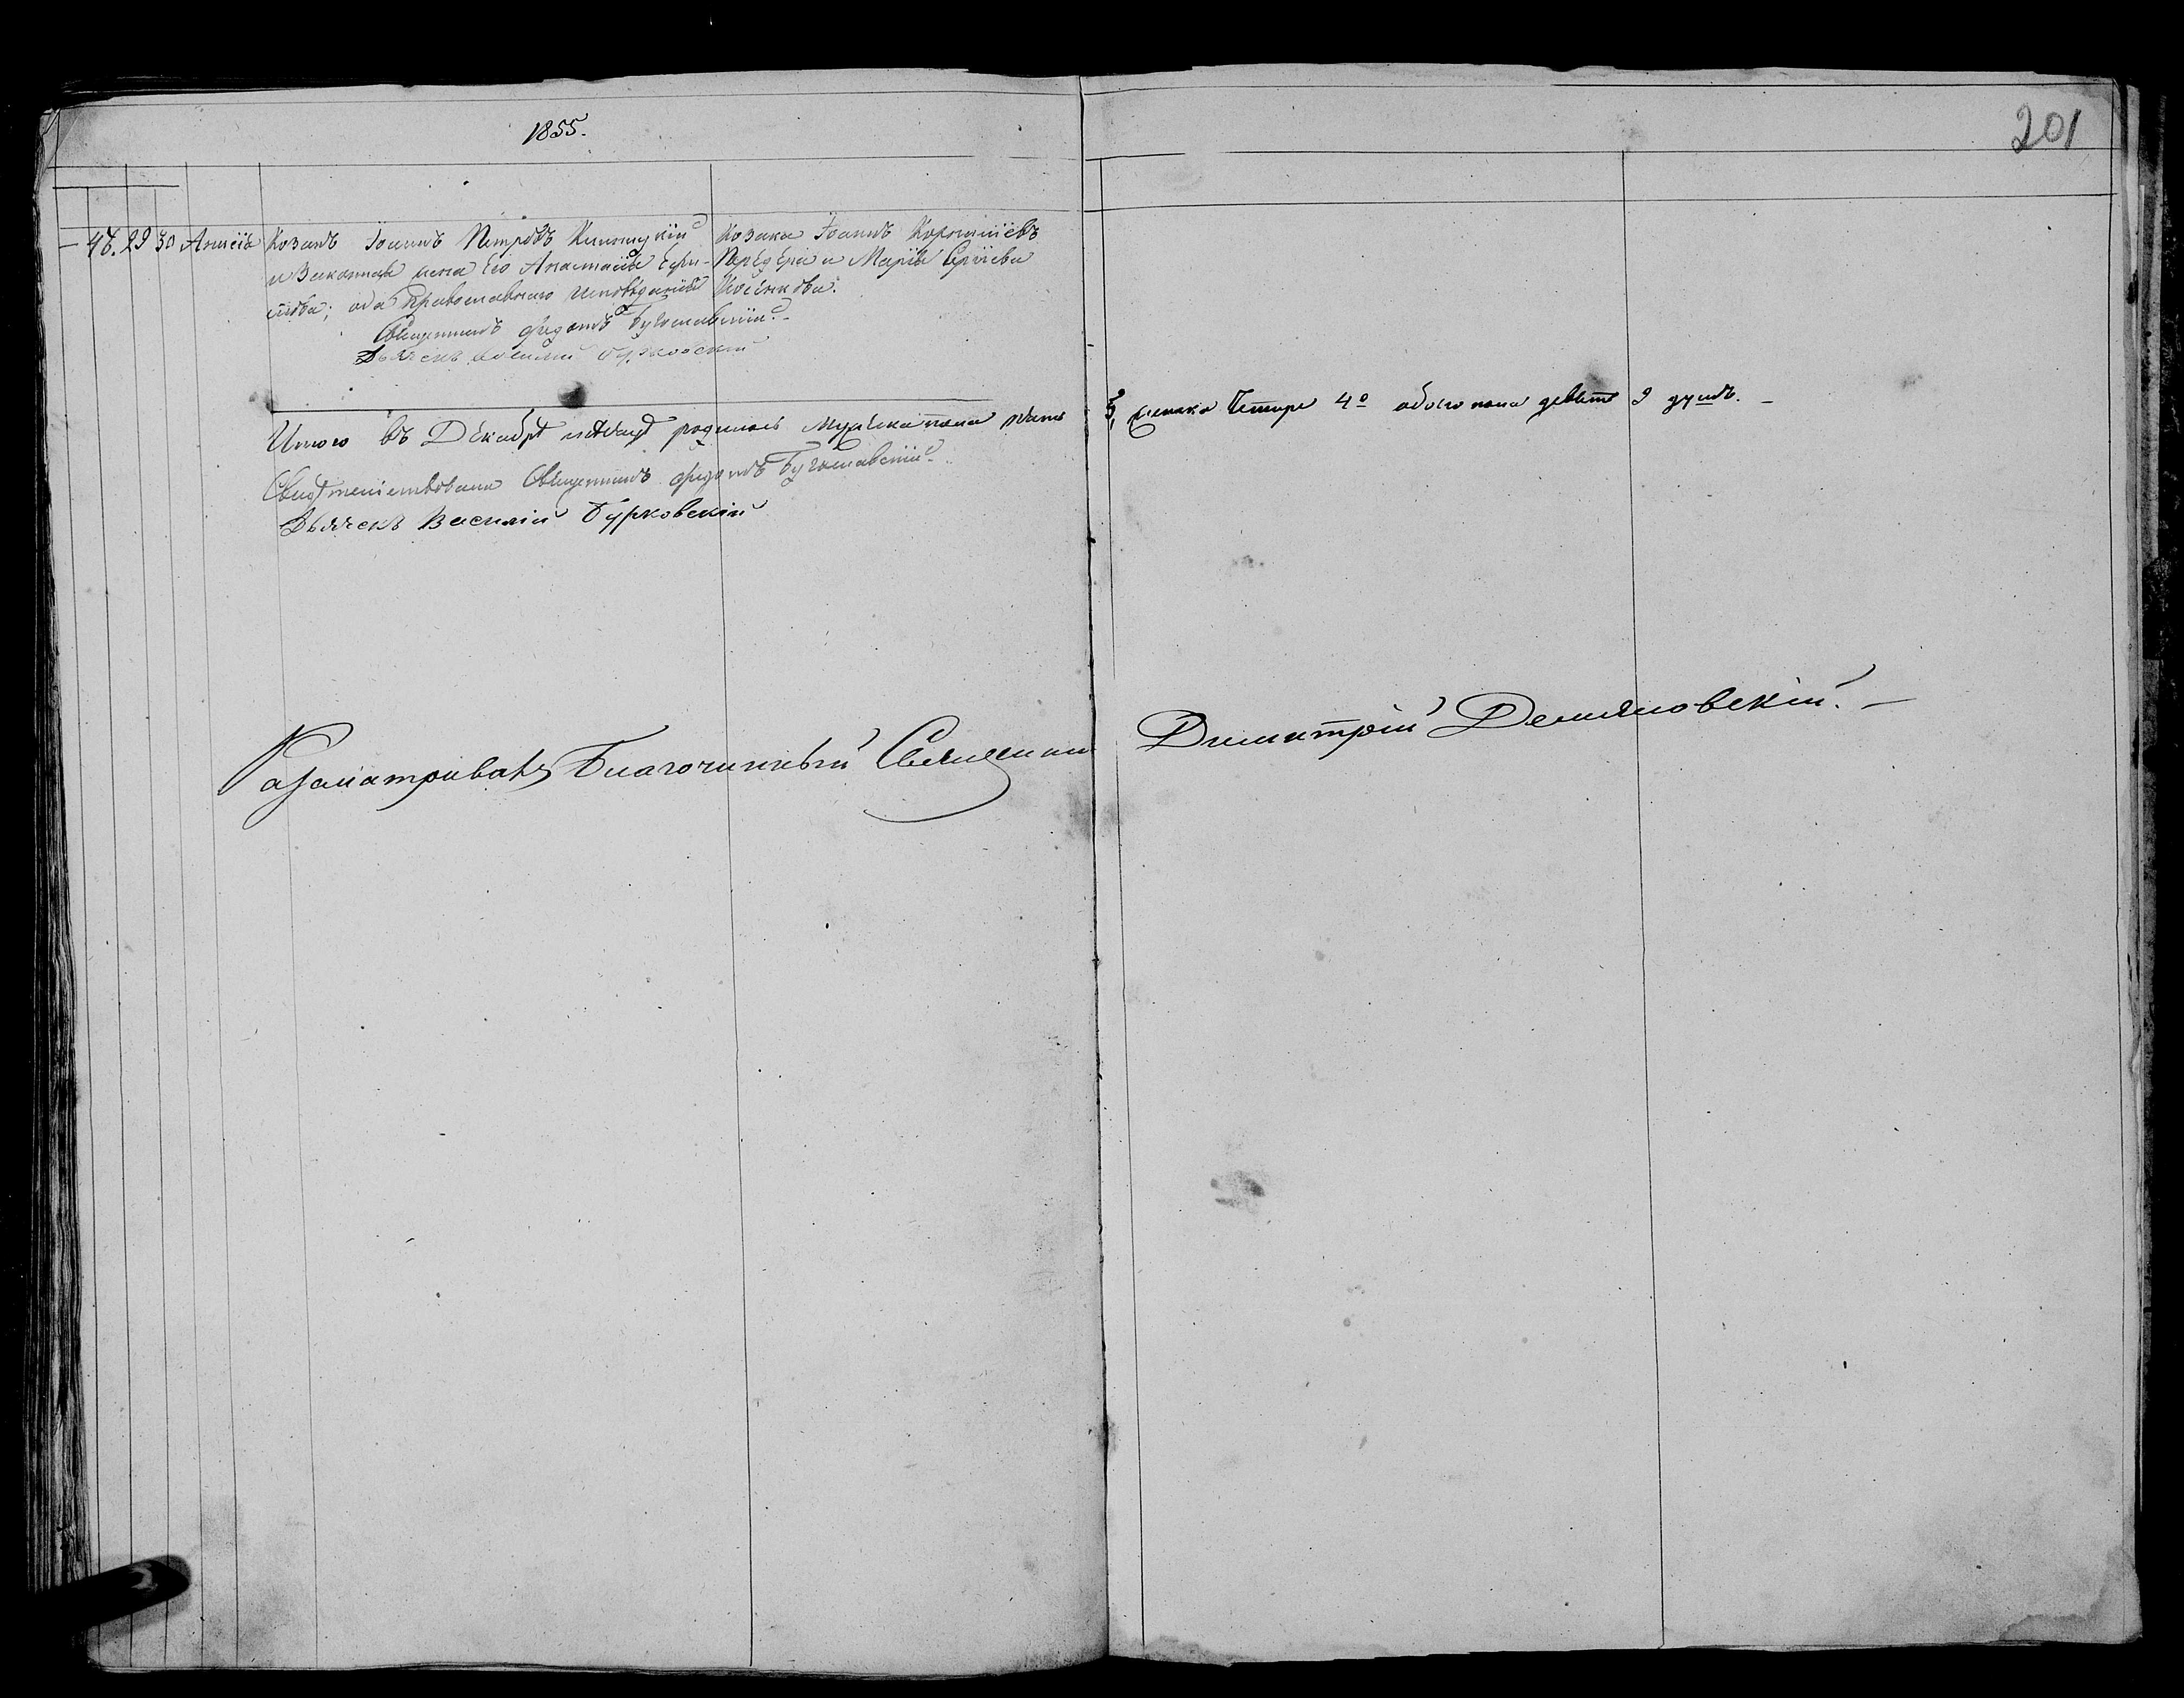 1855.
201
48. 29 30 Анисія Козакъ Іоаннъ Петровъ
и Законная жена Его Анастасія
оба Православнаго исповѣданія
Священникъ Ѳедоръ Богославскій
Дьячекъ Василій Бурковскій
Козака Іоаннъ
и Марія
Итого въ Декабрѣ мѣсяцѣ родилось Мужеска пола пять 5, женска Четыре 4е обоего пола девять 9 душъ. –
Свидѣтельствовали Священникъ Ѳедоръ Богославскій
Дьячекъ Василій Бурковскій
Разсматривалъ Благочинный Священникъ Димитрій Демяновскій. –